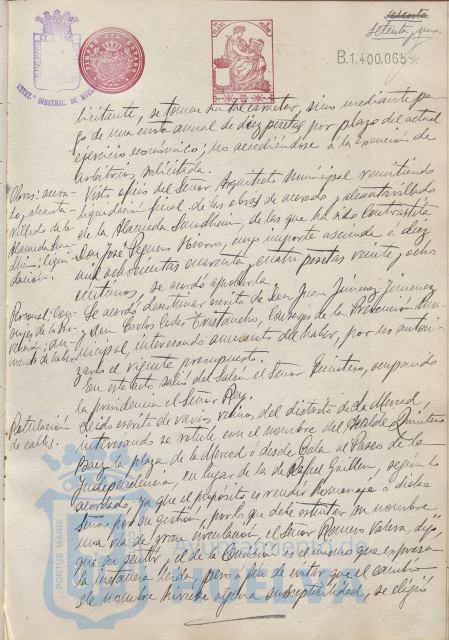 sesenta
Setenta y uno.
B.1.400.065
licitante, se toman en tal caracter, sino mediante pa-
go de una cuota anual de diez pesetas por plazo del actual
ejercicio económico; no accediendose á la exencion de
arbitrios solicitada.
Obras: acera-
do y alcanta-
rillado de la
Alameda Sun-
dheim; liqui-
dacion.
Visto oficio del Señor Arquitecto Municipal remitiendo
liquidacion final de las obras de acerado y alcantarillado
de la Alameda Sundheim, de las que ha sido contratista
Don José Seguro Moreno, cuyo importe asciende á diez
mil ochocientas cuarenta y cuatro pesetas veinte y ocho
centimos, se acordó aprobarla.
Personal: Con-
serjes de la Pre-
vencion; au-
mento de haber.
Se acordó desestimar escrito de Don Juan Jimenez Jimenez
y Don Carlos Cader Tristancho, Conserjes de la Prevencion Mu-
nicipal, interesando aumento del haber, por no autori-
zarlo el vigente presupuesto.
En este acto salió del Salon el Señor Quintero, ocupando
la presidencia el Señor Rey.
Rotulación
de calles.
Leido escrito de varios vecinos del distrito de la Merced,
interesando se rotule con el nombre del Alcalde Quintero
Baez la plaza de la Merced ó desde Cala al Paseo de la
Independencia, en lugar de la de Rafael Guillen, según lo
acordado, ya que el propósito es rendir homenaje á dicho
Señor por su gestión, por lo que debe ostentar su nombre
una via de gran circulacion, el Señor Romero Valera, dijo,
que su sentir, el de la Comision es el mismo que expresa
la instancia leida, pero á fin de evitar que el cambio
de nombre hiriese alguna susceptibilidad, se eligió
PORTUS MARIS
Ayuntamiento de
HUELVA